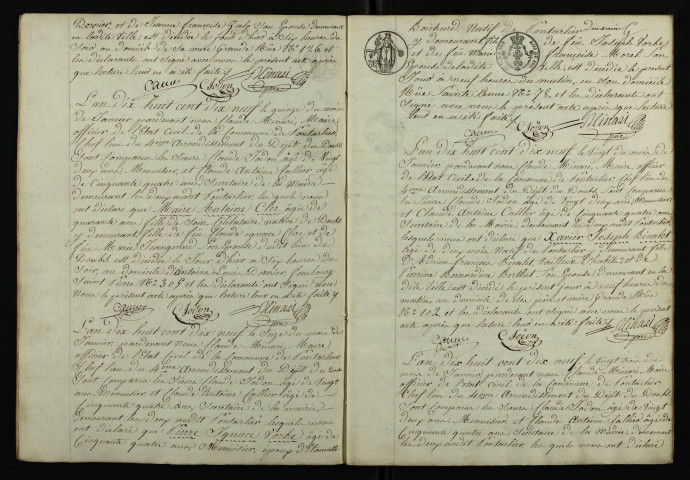 Dornier, et de Jeanne Françoise Son Epouse demeurant
en ladite Ville est décédé le jour d'hier à Six heures du
Soir au domicile de Sa mère Grande Rue No 126 et
les déclarants ont Signé avec nous le présent acte après
que lecture leur en a été faite
L'an dix huit cent dix neuf le quinze du mois
de Janvier pardevant nous Claude Minary, Maire
officier de l'Etat Civil de la Commune de Pontarlier
Chef lieu du 4eme Arrondissement du Dépt du Doubs
Sont comparus les Sieurs Claude Jodon âgé de Vingt
deux ans, Menuisier, et Claude Antoine Callier âgé
de Cinquante quatre ans Secrétaire de la Mairie
demeurant les deux audit Pontarlier les quels nous
ont déclaré que Marie Antoine Clerc âgée de
quarante ans native de Doubs
y demeurant, fille de feu Claude Ignace Clerc et de
feue Marie Son Epouse dudit lieu de
Doubs est décédée le Jour d'hier à Six heures du
Soir, au domicile d'Antoine Louis Dornier faubourg
Saint Pierre No 305 et les déclarants ont Signé avec
Nous le présent acte après que lecture leur en a été faite
L'an dix huit cent dix neuf le Seize du mois de
Janvier pardevant Nous Claude Minary, Maire
officier de l'Etat Civil de la Commune de Pontarlier
Chef lieu du 4eme Arrondissement du Dépt du Doubs
Sont comparus les Sieurs Claude Jodon âgé de Vingt
deux ans Menuisier et Claude Antoine Callier âgé de
Cinquante quatre ans, Secrétaire de la Mairie,
demeurant les deux audit Pontarlier lesquels nous
ont déclaré que Pierre Ignace Vorbe âgé de
Cinquante quatre ans Menuisier, époux d'
Natif de Pontarlier
y demeurant fils de feu Joseph Vorbe
et de feue Françoise Morel Son
Epouse de ladite Ville est décédé le présent
Jour à neuf heures du matin, en Son domicile
Rue Sainte Anne No 278, et les déclarants ont
Signé avec nous le présent acte après que lecture
leur en a été faite
L'an dix huit cent dix neuf le Vingt du mois de
Janvier, pardevant nous Claude Minary, Maire officier
de l'Etat Civil de la Commune de Pontarlier, Chef lieu du
4eme Arrondissement du Dépt du Doubs, Sont comparus
les Sieurs Claude Jodon âgé de Vingt deux ans, Menuisier
et Claude Antoine Callier âgé de Cinquante quatre ans
Secrétaire de la Mairie demeurant les deux audit Pontarlier
lesquels nous ont déclaré que Xavier Joseph
âgé de deux mois Natif de Pontarlier y demeurant fils
de Adrien François et de
Pierrine Bernardine Berthet Son Epouse demeurant en la
dite Ville est décédé le présent jour à neuf heures du
matin, au domicile de Ses père et mère Grande Rue
No 102 et les déclarants ont Signé avec nous le présent
acte après que lecture leur en a été faite
L'an dix huit cent dix neuf le Vingt trois du
mois de Janvier, pardevant nous Claude Minary, Maire
officier de l'Etat Civil de la Commune de Pontarlier
Chef lieu du 4eme Arrondissement du Dépt du Doubs
Sont comparus les Sieurs Claude Jodon âgé de Vingt
deux ans, Menuisier et Claude Antoine Callier âgé de
Cinquante quatre ans Secrétaire de la Mairie demeurant
les deux audit Pontarlier, les quels nous ont déclaré